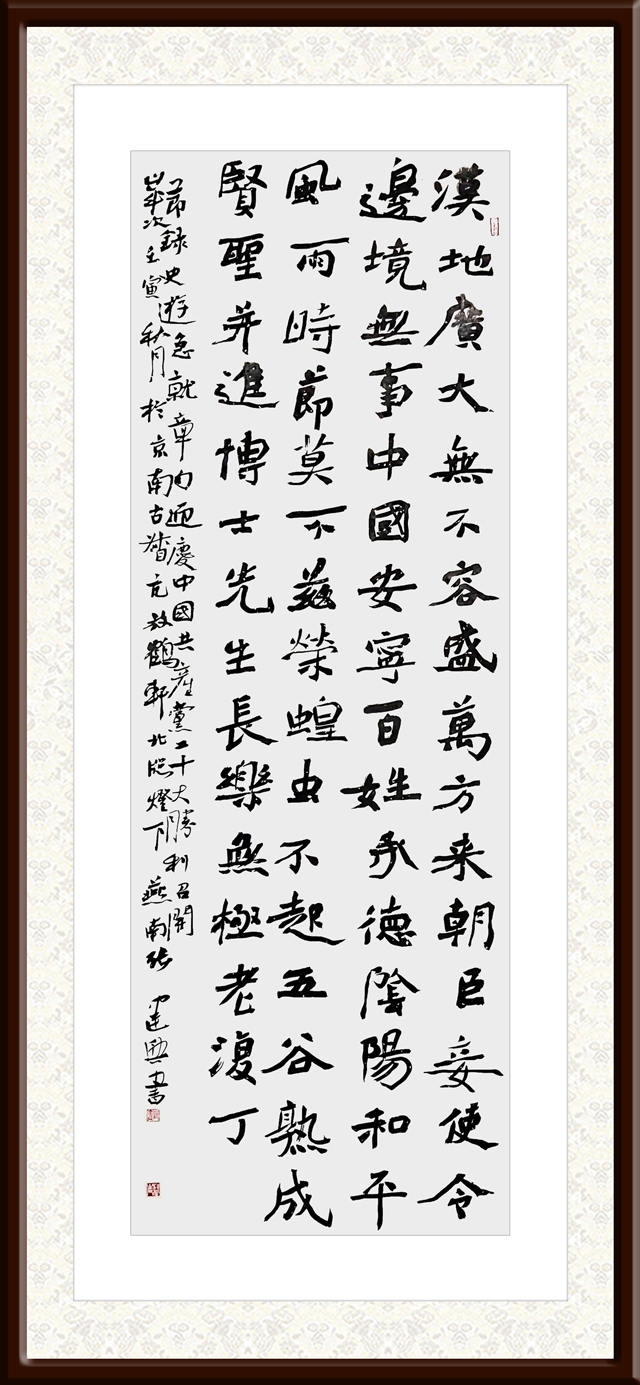 漠地廣大無不容盛萬方来朝臣妾使令
邊境無事中國安寧百姓承德陰陽和平
風雨時節莫不兹榮蝗虫不起五谷熟成
賢聖并進博士先生長樂無極老復丁
節録史游急就章句迎慶中國共産黨二十大勝利召開
歲次壬寅秋月於京南古督亢放鶴軒北牕燈下燕南張建興書